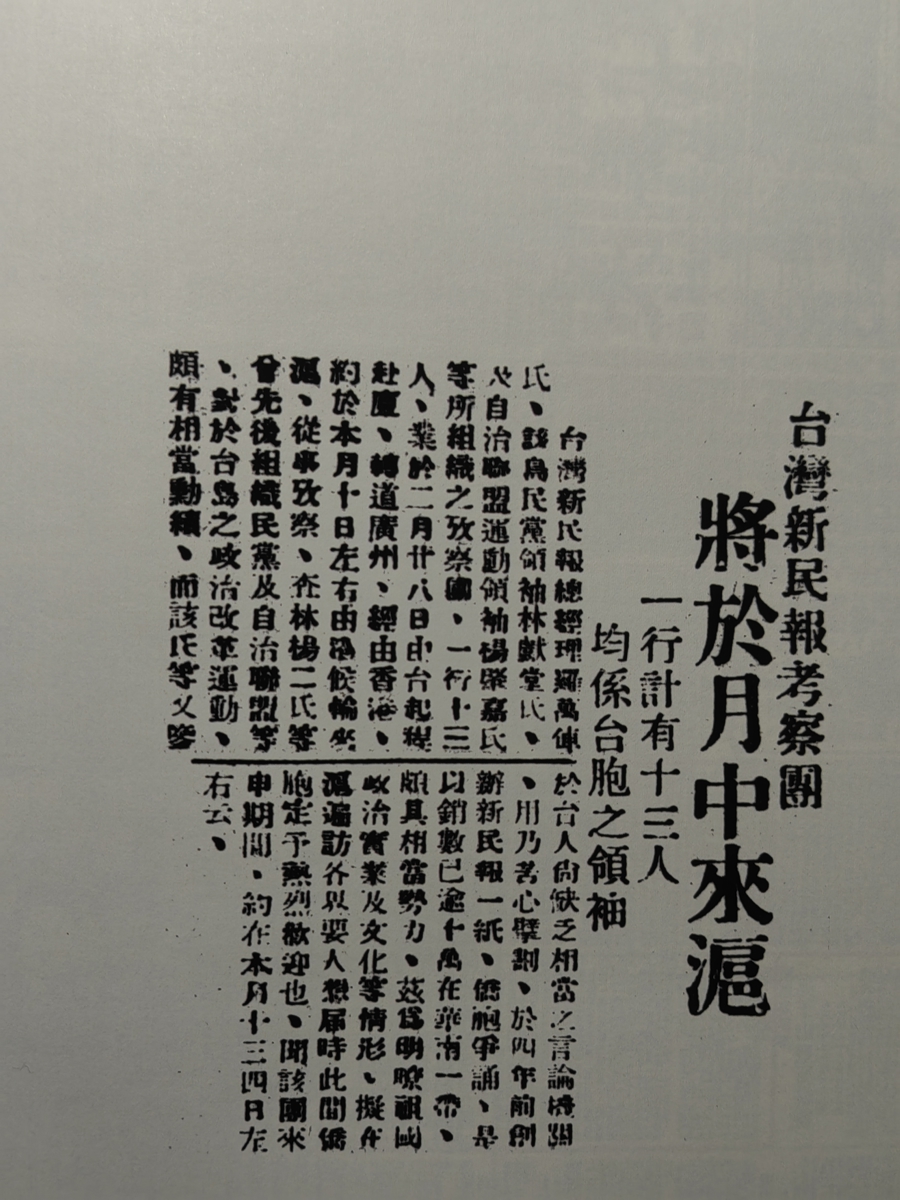 台灣新民報考察團
將於月中來滬
一行計有十三人
均係台胞之領袖
台灣新民報總經理羅萬俥
氏、該島民黨領袖林獻堂氏、
及自治聯盟運動領袖楊肇嘉氏
等所組織之攷察團、一行十三
人、業於二月廿八日由台起程
赴廈、轉道廣州、經由香港、
約於本月十日左右由滬候輪來
滬、從事攷察、查林楊二氏等
曾先後組織民黨及自治聯盟等
、對於台島之政治改革運動、
頗有相當動績、而該氏等又鑒
於台人尙缺乏相當之言論機關
、用乃苦心擘劃、於四年前創
辦新民報一紙、僑胞爭誦、是
以銷數已逾十萬在華南一帶、
頗具相當勢力、茲爲明瞭祖國
政治實業及文化等情形、擬在
滬遍訪各界要人想屆時此間僑
胞定予熱烈歡迎也、聞該團來
申期間、約在本月十三四日左
右云、